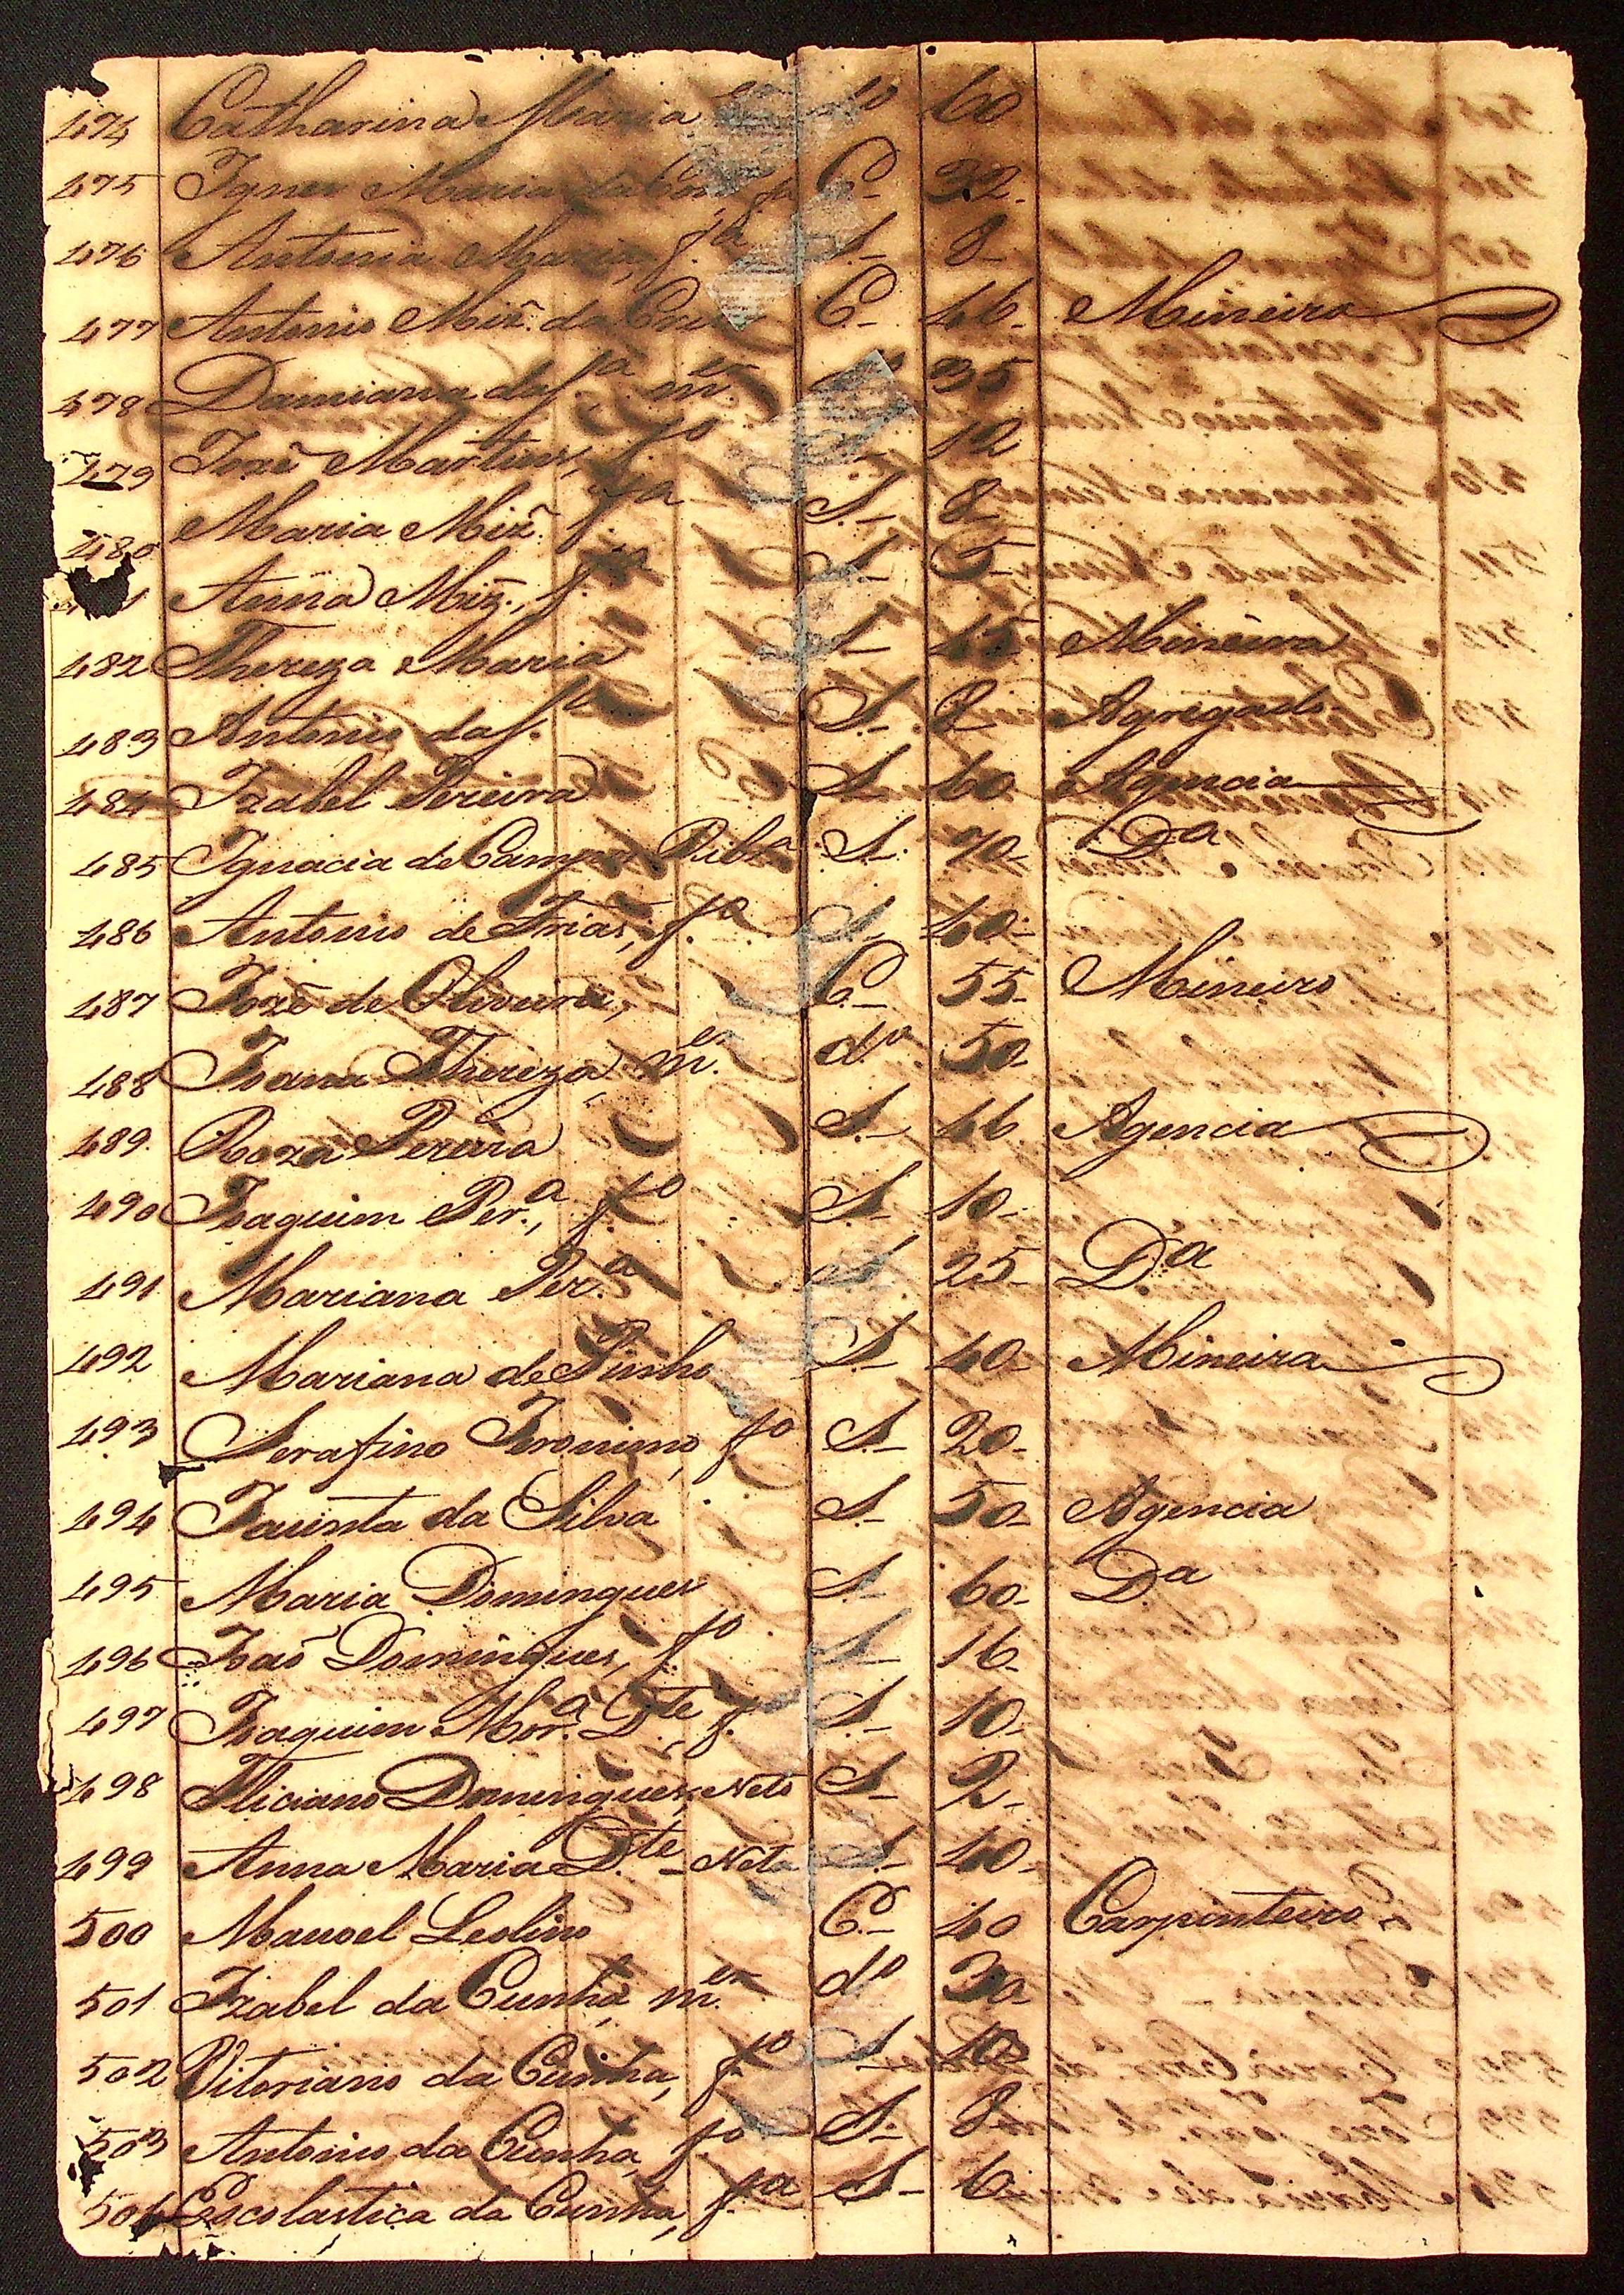 474 Catharina Maria do 60
475 Ignes Maria da Cruz, fa C. 32
476 Antonia Maria, fa S. 8
477 Antonio Miz. da Cruz C. 46 Mineiro
478 Damiana da fa mer do 35
479 Jozé Martins, fo 12
480 Maria Miz. fa S. 8
Anna Miz., f. S. 5
482 Thereza Maria S. 45 Mineira
483 Antonio da S. 8 Agregado
484 Izabel Pereira S. 60 Agencia
485 Ignacia de Campos Riba S. 70 Da
486 Antonio de Frias, fo S. 40
487 Jozé de Oliveira, C. 55 Mineiro
488 Joana Thereza, mer do 50
489 Roza Pereira S. 46 Agencia
490 Joaquim Pera, fo S. 10
491 Mariana Pera S. 25 Da
492 Mariana de Pinho S. 40 Mineira
493 Serafino Jeronimo, fo S. 20
494 Jacinta da Silva S. 50 Agencia
495 Maria Domingues S. 60 Da
496 Joaõ Domingues, fo S. 16
497 Joaquim Mora Dte, f. S. 10
498 Feliciano Domingues, Neto S. 2
499 Anna Maria Dte Neta S. 40
500 Manoel Leolino C. 40 Carpinteiro
501 Izabel da Cunha, mer do 30
502 Vitoriano da Cunha, fo S. 10
503 Antonio da Cunha, fo S. 8
504 Escolastica da Cunha, fa S. 6